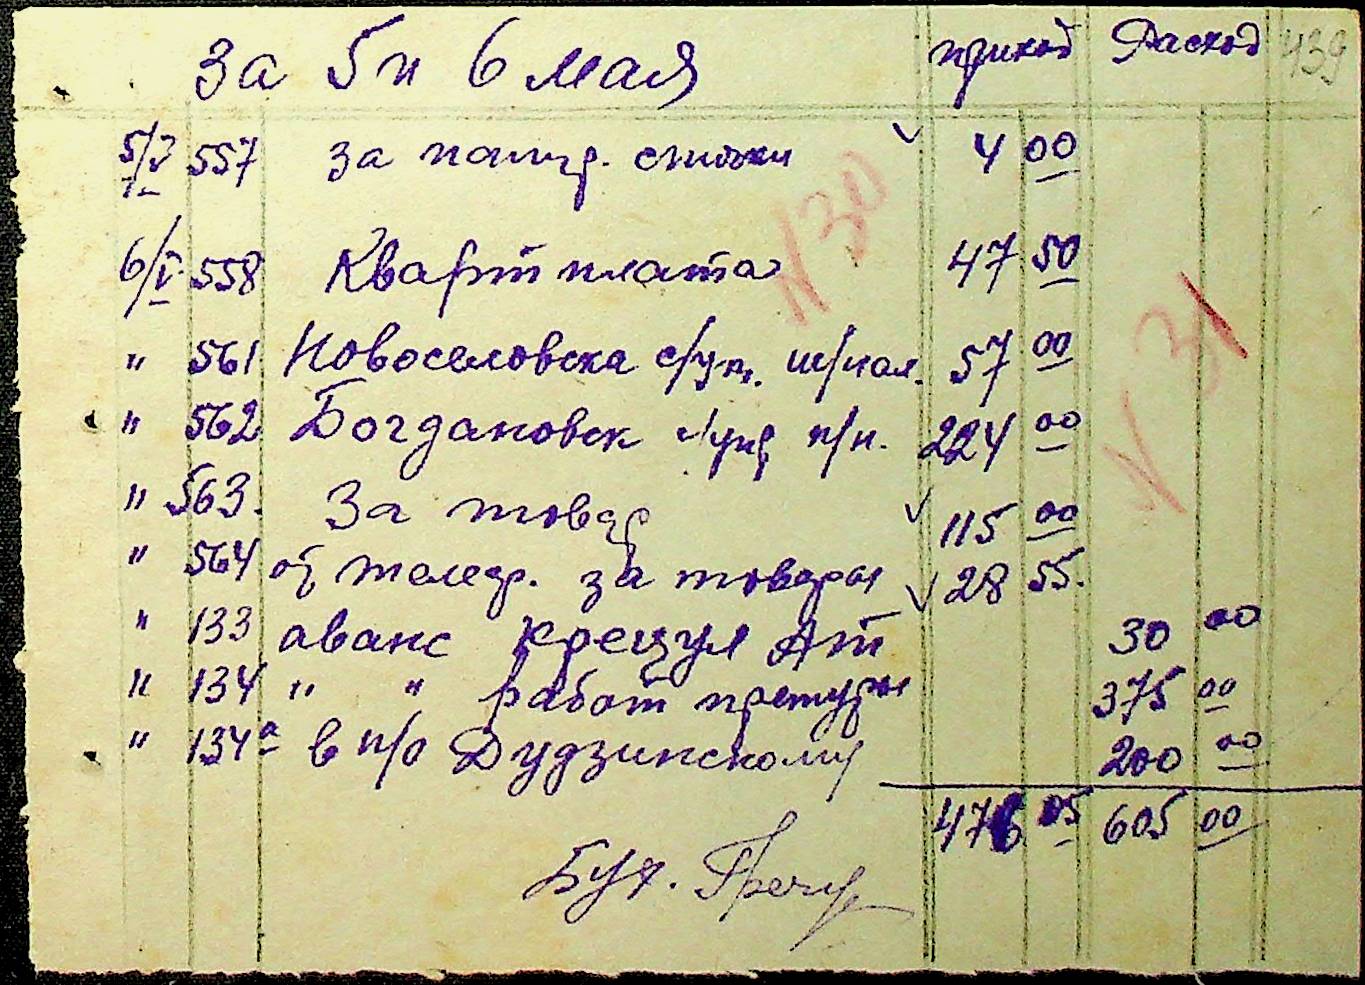 за 5 и 6 мая приход Расход 439
5/V 557 за папир. спички 4 00
6/V 558 Кварт плата 47 50
" 561 Новоселовска с/уп. ш/кал. 57 00
" 562 Богдановск с/упр п/н. 224 00
" 563. За товар 115 00
" 564 от телегр. за товары 28 55.
" 133 аванс Крецул Ат 30 00
" 134 " " работ претуры 375 00
" 134а в п/о Дудзинскому 200 00
476 05 605 00
Бух.
N 30
N 31